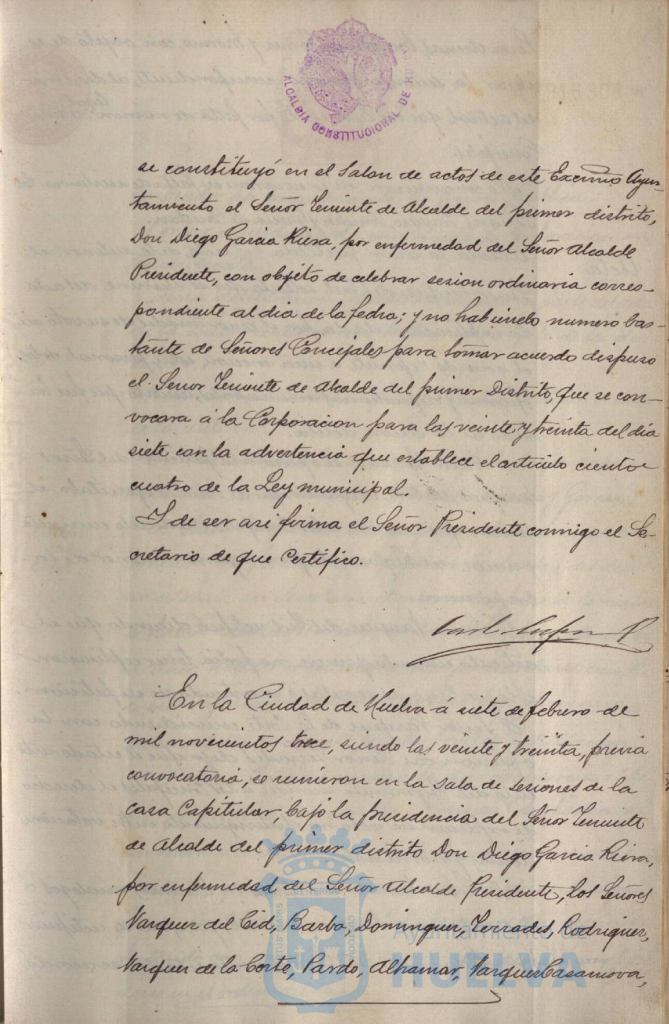 ALCALDIA CONSTITUCIONAL DE HU
se constituyó en el Salon de actos de este Excmo Ayun-
tamiento el Señor Teniente de Alcalde del primer distrito,
Don Diego Garcia Riera, por enfermedad del Señor Alcalde
Presidente, con objeto de celebrar sesion ordinaria corres-
pondiente al dia de la fecha; y no habiendo numero bas-
tante de Señores Concejales para tomar acuerdo dispuso
el Señor Teniente de Alcalde del primer Distrito, que se con-
vocara á la Corporacion para las veinte y treinta del día
siete con la advertencia que establece el articulo ciento
cuatro de la Ley municipal.
Y de ser asi firma el Señor Presidente conmigo el Se-
cretario de que Certifico.
En la Ciudad de Huelva á siete de febrero de
mil novecientos trece, siendo las veinte y treinta, previa
convocatoria, se reunieron en la sala de sesiones de la
casa Capitular, bajo la presidencia del Señor Teniente
de Alcalde del primer distrito Don Diego Garcia Riera,
por enfermedad del Señor Alcalde Presidente, los Señores
Vazquez del Cid, Barba, Dominguez, Terrades, Rodriguez,
Vazquez de la Corte, Pardo, Alhamar, Vazquez Casanova,
Ayuntamiento
HUELVA